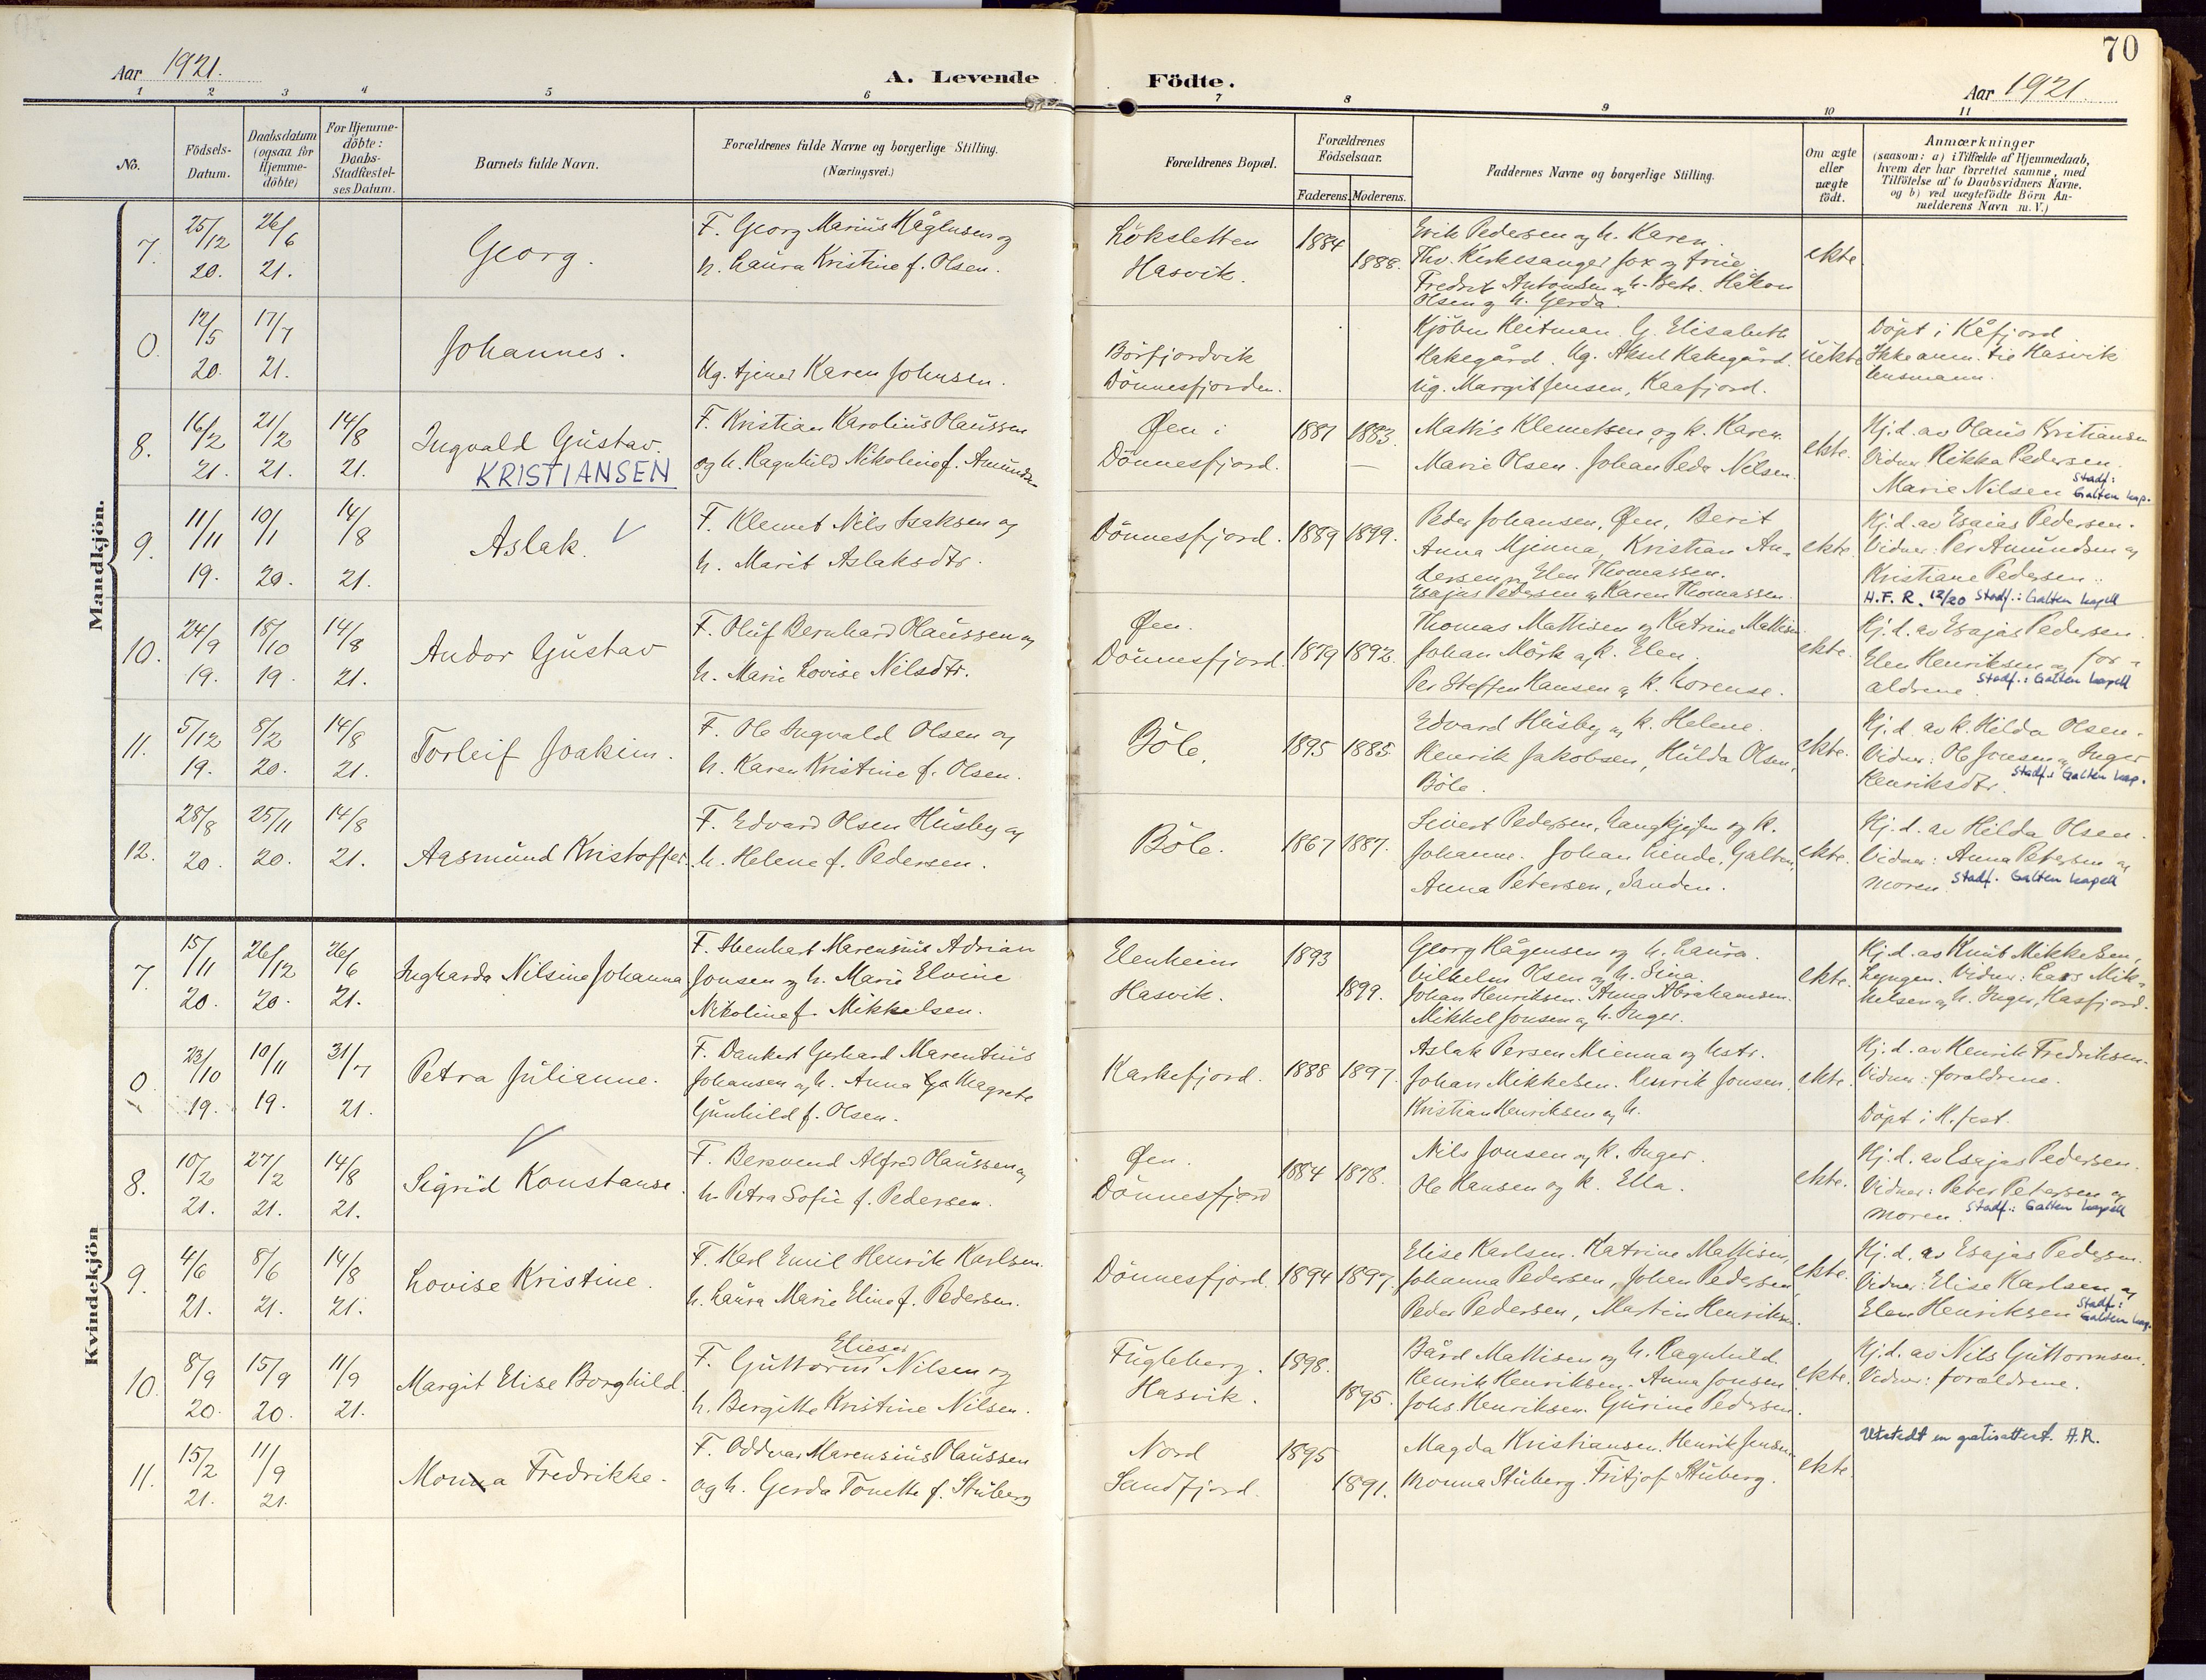 70
Aar 1921.
A. Levende Födte.
Aar 1921.
1 2 3 4 5 6 7 8 9 10 11
No.
Födsels-Datum.
Daabsdatum (ogsaa for Hjemme-döbte)
For Hjemme-döbte: Daabs-Stadfæstel-ses Datum.
Barnets fulde Navn.
Forældrenes fulde Navne og borgerlige Stilling.
(Næringsvei.)
Forældrenes Bopæl.
Forældrenes Födselsaar.
Faderens. Moderens.
Faddernes Navne og borgerlige Stilling.
Om ægte eller uægte födt.
Anmærkninger
(saasom: a) i Tilfælde af Hjemmedaab,
hvem der har forrettet samme, med
Tilföielse af to Daabsvidners Navne,
og b) ved uægtefödte Börn An-
melderens Navn m. V.)
Mandkjön.
7.
25/12 20.
26/6 21.
Georg.
F. Georg Marius Hågensen og
h. Laura Kristine f. Olsen.
Löksletten
Hasvik.
1884
1888.
Erik Pedersen og h. Karen.
Thv. Kirkesanger Fox og frue
Fredrik Antonsen og h. Berte. Håkon
Olsen og h. Gerda.
ekte.
0.
12/5 20.
17/7 21.
Johannes.
Ug. tjener Karen Johnsen.
Börfjordvik
Dönnesfjorden.
Kjöbm Heitman. G. Elisabeth
Hakegård. Ug. Aksel Hakegård.
Ug. Margit Jensen, Kaafjord.
uekte
Döpt i Kåfjord
Ikke anm. til Hasvik
lensmann.
8.
16/2 21.
21/2 21.
14/8 21.
Ingvald Gustav.
KRISTIANSEN
F. Kristian Karolius Olaussen
og h. Ragnhild Nikoline f. Amundsen
Øen i
Dönnesfjord.
1881 1883.
Mattis Klemetsen og h. Karen.
Marie Olsen. Johan Peder Nilsen.
ekte.
Hj. d. av Olaus Kristiansen
Vidner Rikka Pedersen.
Marie Nilsen Stadf: Galten kap.
9.
11/11 19.
10/1 20.
14/8 21.
Aslak.
F. Klemet Nils Isaksen og
h. Marit Aslaksdtr.
Dönnesfjord.
1889 1899.
Peder Johansen, Øen, Berit
Anna Mjenna, Kristian An-
dersen og Elen Thomassen.
Esajas Pedersen og Karen Thomassen.
ekte.
Hj. d. av Esaias Pedersen.
Vidner: Per Amundsen og
Kristiane Pedersen.
H.F.R. 12/20 Stadf.: Galten kapell
10.
24/9 19.
18/10 19.
14/8 21.
Andor Gustav
F. Oluf Bernhard Olaussen og
h. Marie Lovise Nilsdtr.
Øen.
Dönnesfjord.
1879 1892.
Thomas Mattisen og Katrine Mattisen.
Johan Mörk og h. Elen.
Per Steffen Hansen og h. Lorense.
ekte.
Hj. d. av Esajas Pedersen.
Elen Henriksen og for-
ældrene. Stadf.: Galten kapell
11.
5/12 19.
8/2 20.
14/8 21.
Torleif Joakim.
F. Ole Ingvald Olsen og
h. Karen Kristine f. Olsen.
Böle.
1895 1885.
Edvard Husby og h. Helene.
Henrik Jakobsen, Hulda Olsen,
Böle.
ekte.
Hj. d. av h. Hilda Olsen.
Vidner: Ole Jonsen og Inger
Henriksdtr. Stadf.: Galten kap.
12.
28/8 20.
25/11 20.
14/8 21.
Aasmund Kristoffer.
F. Edvard Olsen Husby og
h. Helene f. Pedersen.
Böle.
1867 1887.
Sivert Pedersen, Langkjeften og h.
Johanne. Johan Linde, Galten,
Anna Petersen, Sanden.
ekte.
Hj. d. av Hilda Olsen.
Vidner: Anna Petersen og
moren. Stadf. Galten kapell
Kvindekjön
7.
15/11 20.
26/12 20.
26/6 21.
Ingharda Nilsine Johanna
F. Ibenhart Marensius Adrian
Jonsen og h. Marie Elvine
Nikoline f. Mikkelsen.
Elenheim
Hasvik.
1893
1899.
Georg Hågensen og h. Laura.
Vilhelm Olsen og h. Sina.
Johan Henriksen. Anna Abrahamsen.
Mikkel Jonsen og h. Inger.
ekte.
Hj. d. av Knut Mikkelsen,
Lyngen. Vidner: Lars Mik-
kelsen og h. Inger, Hasfjord.
0.
23/10 19.
10/11 19.
31/7 21.
Petra Julianne.
F. Dankert Gerhard Marentius
Johansen og h. Anna Magrete
Gunhild f. Olsen.
Karkefjord.
1888 1897.
Aslak Persen Mienna og hstr.
Johan Mikkelsen. Henrik Jonsen.
Kristian Henriksen og h.
ekte.
Hj. d. av Henrik Fredriksen.
Vidner: forældrene.
Döpt i H.fest.
8.
10/2 21.
27/2 21.
14/8 21.
Sigrid Konstanse.
F. Bersvend Alfred Olaussen og
h. Petra Sofie f. Pedersen.
Øen.
Dönnesfjord
1884 1878.
Nils Jonsen og h. Inger.
Ole Hansen og h. Ella.
ekte.
Hj. d. av Esajas Pedersen.
Vidner: Peter Petersen og
moren. Stadf.: Galten kapell
9.
4/6 21.
8/6 21.
14/8 21.
Lovise Kristine.
F. Karl Emil Henrik Karlsen.
h. Laura Marie Eline f. Pedersen.
Dönnesfjord.
1894 1897.
Elise Karlsen. Katrine Mattisen,
Johanna Pedersen, Johan Pedersen
Peder Pedersen, Martin Henriksen.
ekte.
Hj. d. av Esajas Pedersen.
Vidner: Elise Karlsen og
Elen Henriksen Stadf: Galten kap.
10.
8/9 20.
15/9 20.
11/9 21.
Margit Elise Borghild.
Elieser
F. Guttorm Nilsen og
h. Bergitte Kristine Nilsen.
Fugleberg.
Hasvik.
1898.
1895.
Bård Mattisen og h. Ragnhild.
Henrik Henriksen. Anna Jonsen
Johs. Henriksen. Gurine Pedersen.
ekte.
Hj. d. av Nils Guttormsen.
Vidner: forældrene.
11.
15/2 21.
11/9 21.
Monna Fredrikke.
F. Oddvar Marensius Olaussen
og h. Gerda Tonette f. Stuberg
Nord
Sandfjord.
1895
1891.
Magda Kristiansen. Henrik Jensen.
Monna Stuberg. Fritjof Stuberg.
ekte.
Utstedt en gratisattest. H.R.